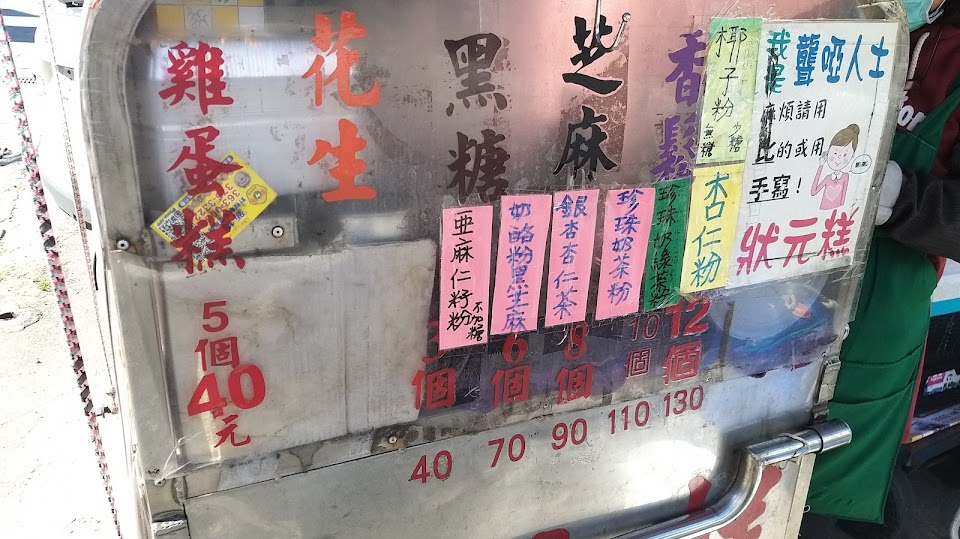 雞蛋糕
5個
40元
花生
黑糖
芝麻
香鬆
椰子粉
無糖
少糖
我是聾啞人士
麻煩請用
比的或用
手寫!
狀元糕
杏仁粉
亜麻仁籽粉
不加糖
奶酪粉黑芝麻
銀杏杏仁茶
珍珠奶茶粉
珍珠奶綠茶粉
個 6個 8個 10個 12個
40 70 90 110 130